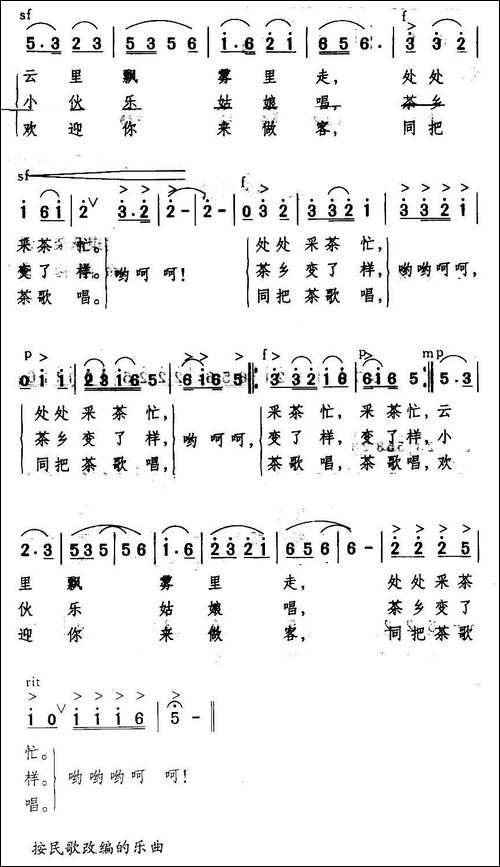 sf f
5·3 2 3 | 5 3 5 6 | 1·6 2 1 | 6 5 6· | 3 3 2
云里 飘 雾里 走, 处处
小伙 乐 姑娘 唱, 茶乡
欢迎 你 来做 客, 同把
sf f
1 6 1 | 2 ∨ 3·2 | 2 - | 2 - | 0 3 2 | 3 3 2 1 | 3 3 2 1
采茶 忙。 处处采茶忙,
变了 样。 哟呵 呵! 茶乡变了样, 哟哟呵呵,
茶歌 唱。 同把茶歌唱,
p f p mp
0 1 1 | 2 3 1 6 5 | 6 1 6 5 :| 3 3 2 1 6 | 6 1 6 5 || 5·3
处处采茶忙, 采茶忙, 采茶忙, 云
茶乡变了样, 哟呵呵, 变了样, 变了样, 小
同把茶歌唱, 茶歌唱, 茶歌唱, 欢
2·3 | 5 3 5 | 5 6 | 1·6 | 2 3 2 1 | 6 5 6 | 6 - | 2 2 2 5
里 飘 雾 里 走, 处处采茶
伙 乐 姑 娘 唱, 茶乡变了
迎 你 来 做 客, 同把茶歌
rit
1 0 ∨ | 1 1 1 6 | 5 - ||
忙。
样。 哟哟哟呵 呵!
唱。
按民歌改编的乐曲